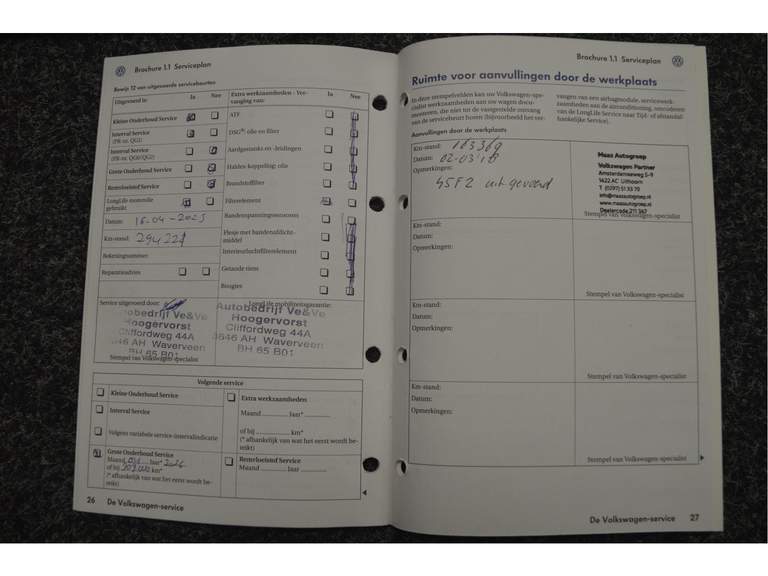 Brochure 1.1 Serviceplan
Bewijs 12 van uitgevoerde servicebeurten
Uitgevoerd in Ja Nee
Kleine Onderhoud Service
Interval Service
(PR-nr. QG1)
Interval Service
(PR-nr. QG0/QG2)
Grote Onderhoud Service
Remvloeistof Service
LongLife motorolie
gebruikt
Datum: 16-04-2025
Km-stand: 294221
Rekeningnummer:
Reparatieadvies
Extra werkzaamheden - Ver-
vanging van: Ja Nee
ATF
DSG®-olie en filter
Aardgastanks en -leidingen
Haldex-koppeling: olie
Brandstoffilter
Filterelement
Bandenspanningssensoren
Flesje met bandenafdicht-
middel
Interieurluchtfilterelement
Getande riem
Bougies
Service uitgevoerd door:
Autobedrijf Ve&Ve
Hoogervorst
Cliffordweg 44A
3646 AH Waverveen
BH 65 B01
Stempel van Volkswagen-specialist
LongLife mobiliteitsgarantie:
Autobedrijf Ve&Ve
Hoogervorst
Cliffordweg 44A
3646 AH Waverveen
BH 65 B01
Volgende service
Kleine Onderhoud Service
Interval Service
Volgens variabele service-intervalindicatie
Grote Onderhoud Service
Maand Jaar* 2026
of bij km*
(* afhankelijk van wat het eerst wordt be-
reikt)
Extra werkzaamheden
Maand Jaar*
of bij km*
(* afhankelijk van wat het eerst wordt be-
reikt)
Remvloeistof Service
Maand Jaar
26 De Volkswagen-service
Brochure 1.1 Serviceplan
Ruimte voor aanvullingen door de werkplaats
In deze stempelvelden kan uw Volkswagen-spe-
cialist werkzaamheden aan uw wagen docu-
menteren, die niet tot de vastgestelde omvang
van de servicebeurt horen (bijvoorbeeld het ver-
vangen van een airbagmodule, servicewerk-
zaamheden aan de airconditioning, omcoderen
van de LongLife Service naar Tijd- of afstandaf-
hankelijke Service).
Aanvullingen door de werkplaats
Km-stand: 183369
Datum: 02-03-18
Opmerkingen:
45F2 uitgevoerd
Maas Autogroep
Volkswagen Partner
Amsterdamseweg 5-9
1422 AC Uithoorn
T (0297) 51 93 70
info@maasautogroep.nl
www.maasautogroep.nl
Dealercode 211 367
Stempel van Volkswagen-specialist
Km-stand:
Datum:
Opmerkingen:
Stempel van Volkswagen-specialist
Km-stand:
Datum:
Opmerkingen:
Stempel van Volkswagen-specialist
Km-stand:
Datum:
Opmerkingen:
Stempel van Volkswagen-specialist
De Volkswagen-service 27